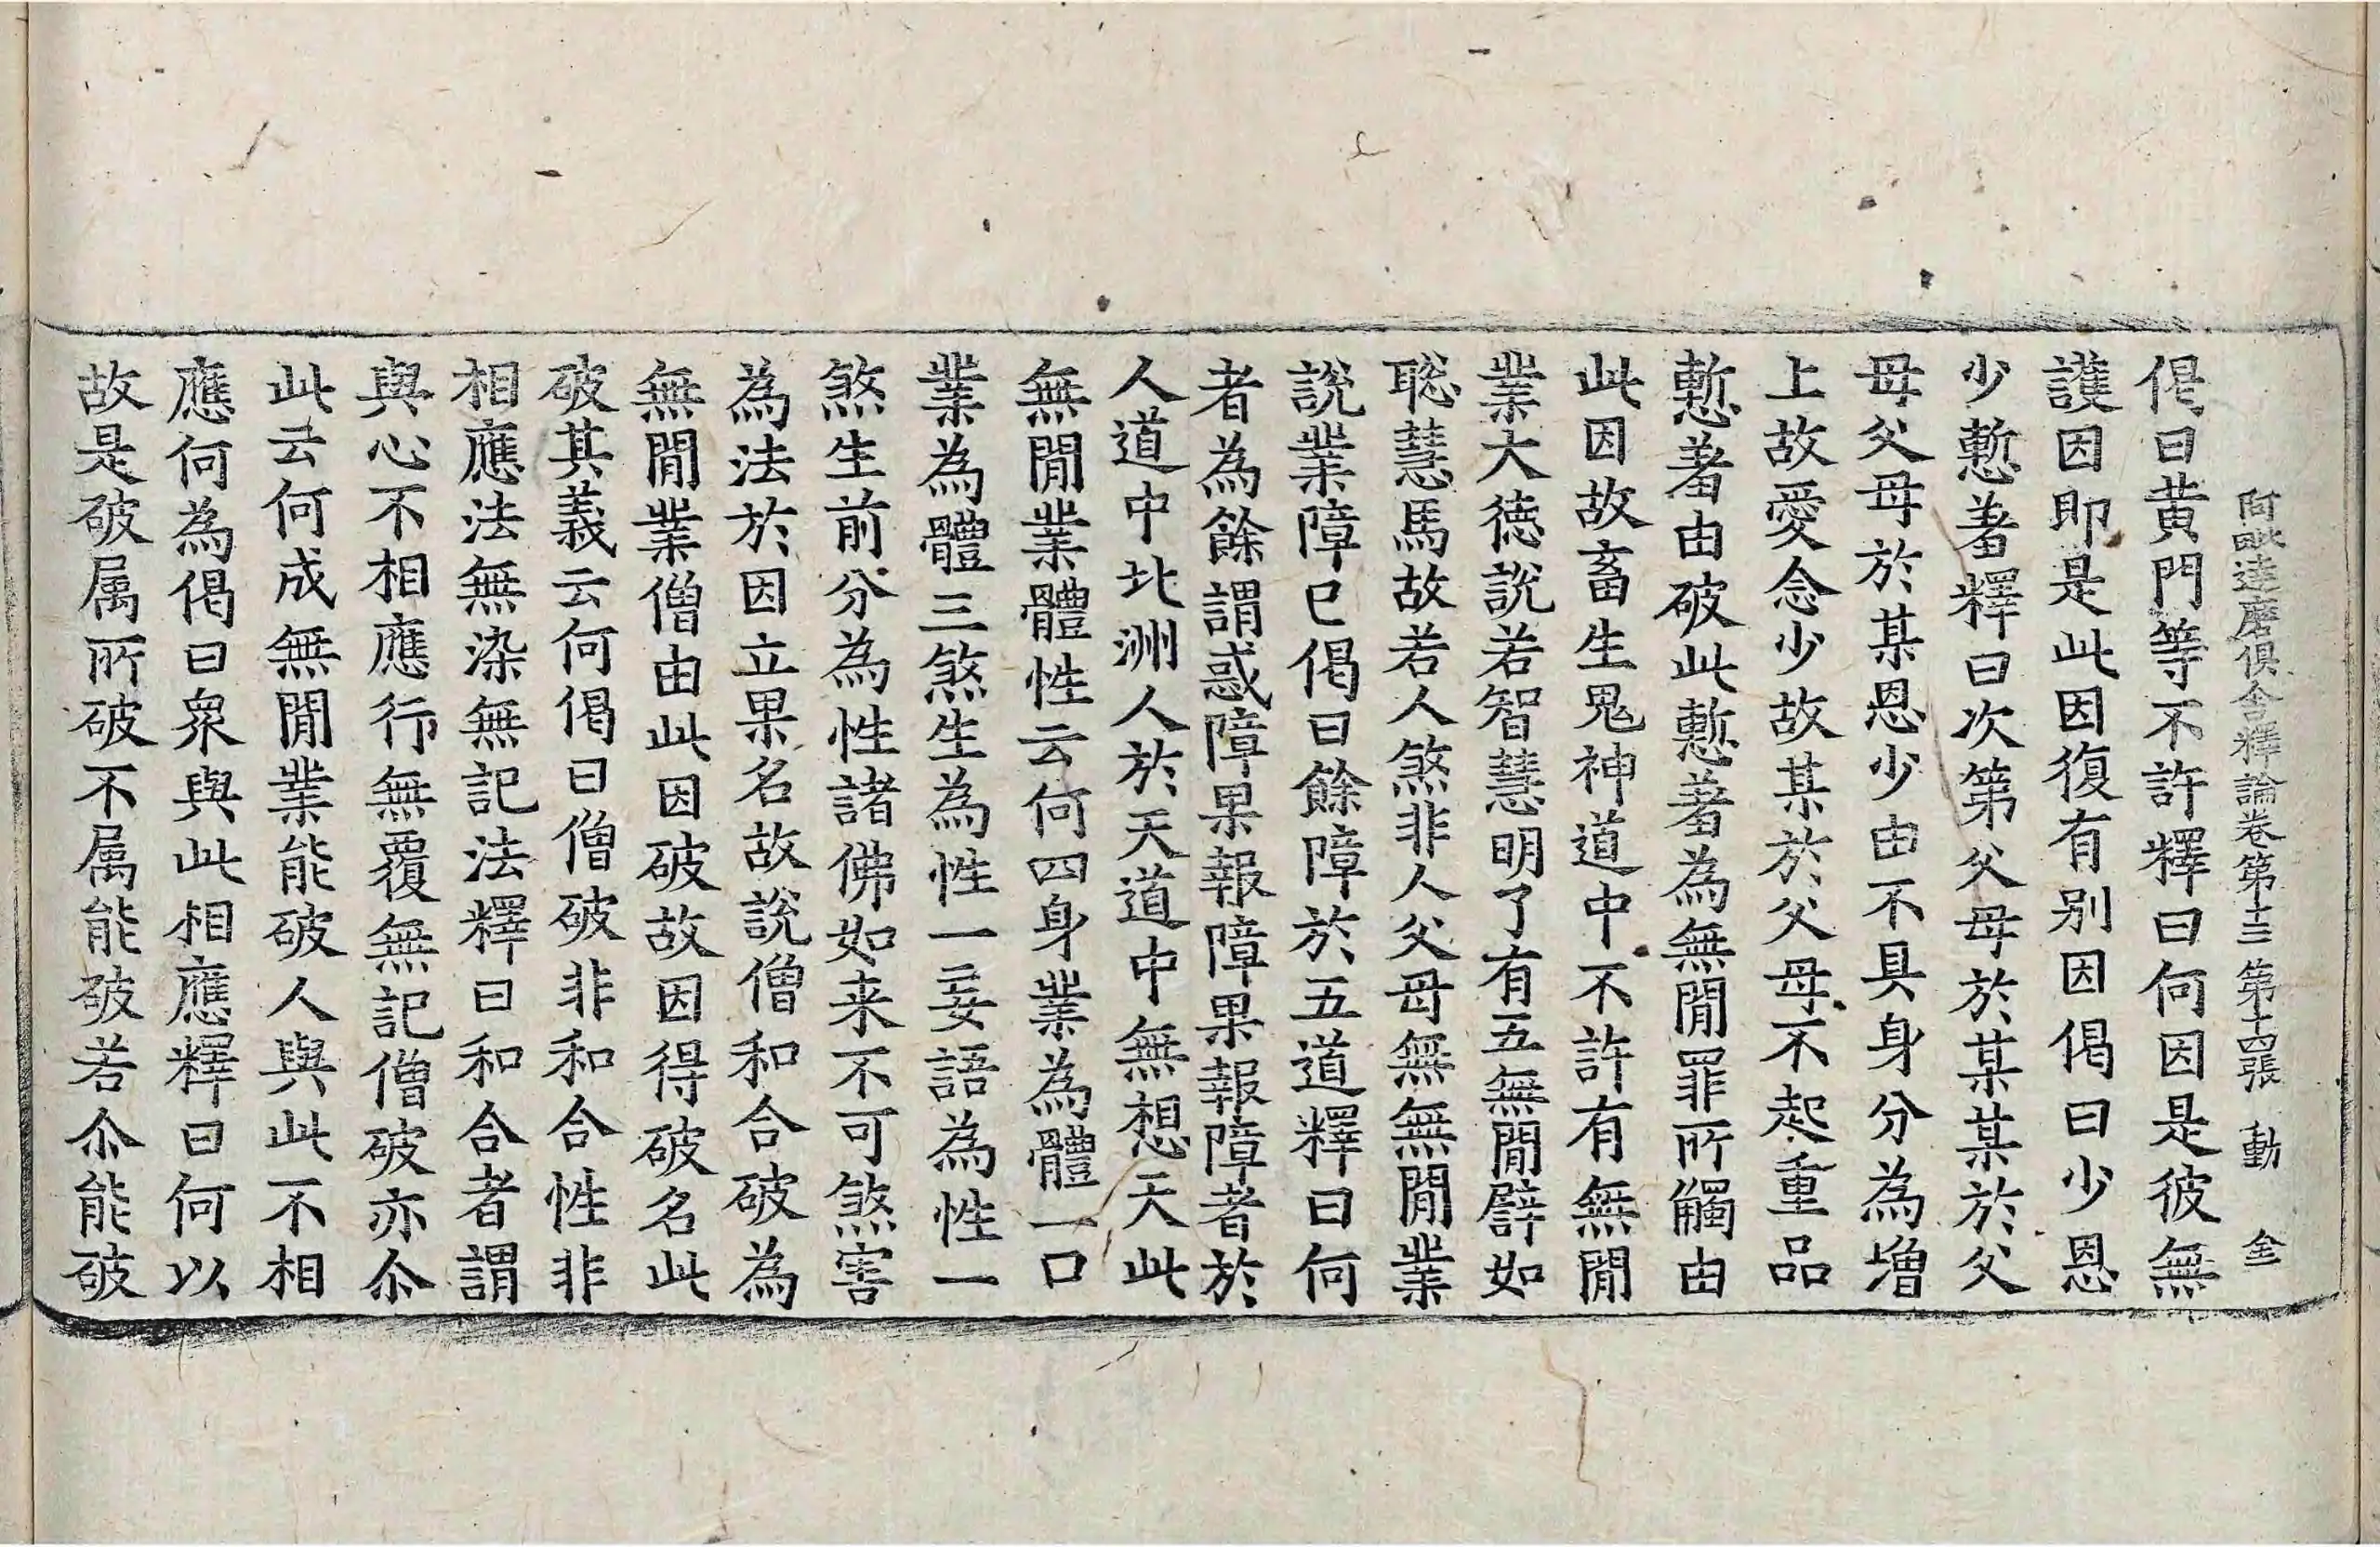 阿毗達磨俱舍釋論卷第十三 第十四張 動 金
偈曰黄門等不許釋曰何因是彼無
護因即是此因復有别因偈曰少恩
少慙羞釋曰次第父母於某某於父
母父母於某恩少由不具身分為增
上故愛念少故某於父母不起重品
慙羞由破此慙羞為無閒罪所觸由
此因故畜生鬼神道中不許有無閒
業大徳說若智慧明了有五無閒譬如
聡慧馬故若人煞非人父母無無閒業
說業障已偈曰餘障於五道釋曰何
者為餘謂惑障果報障果報障者於
人道中北洲人於天道中無想天此
無閒業體性云何四身業為體一口
業為體三煞生為性一妄語為性一
煞生前分為性諸佛如来不可煞害
為法於因立果名故說僧和合破為
無閒業僧由此因破故因得破名此
破其義云何偈曰僧破非和合性非
相應法無染無記法釋曰和合者謂
與心不相應行無覆無記僧破亦尒
此云何成無閒業能破人與此不相
應何為偈曰衆與此相應釋曰何以
故是破属所破不属能破若尒能破